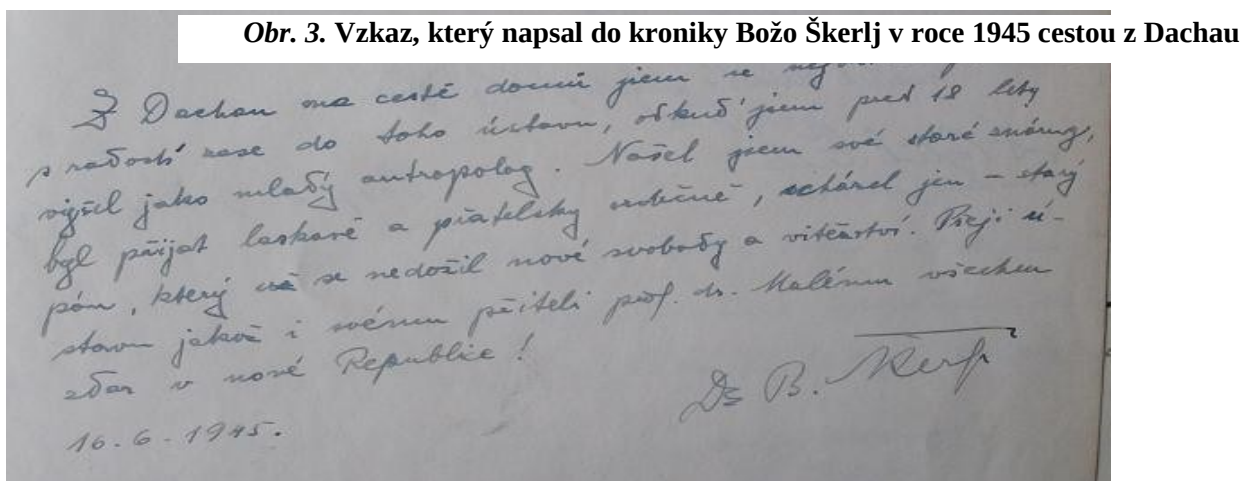 Obr. 3. Vzkaz, který napsal do kroniky Božo Škerlj v roce 1945 cestou z Dachau
Z Dachau na cestě domů jsem se
s radostí zase do toho ústavu, odkud jsem před 18 lety
vyšel jako mladý antropolog. Našel jsem své staré známy,
byl přijat laskavě a přátelsky srdečně, scházel jen – starý
pán, který se nedožil nové svobody a vítězství. Přeji ú-
stavu jakož i svému příteli prof. dr. Malému všechen
zdar v nové Republice!
Dr B. Škerlj
16.6.1945.